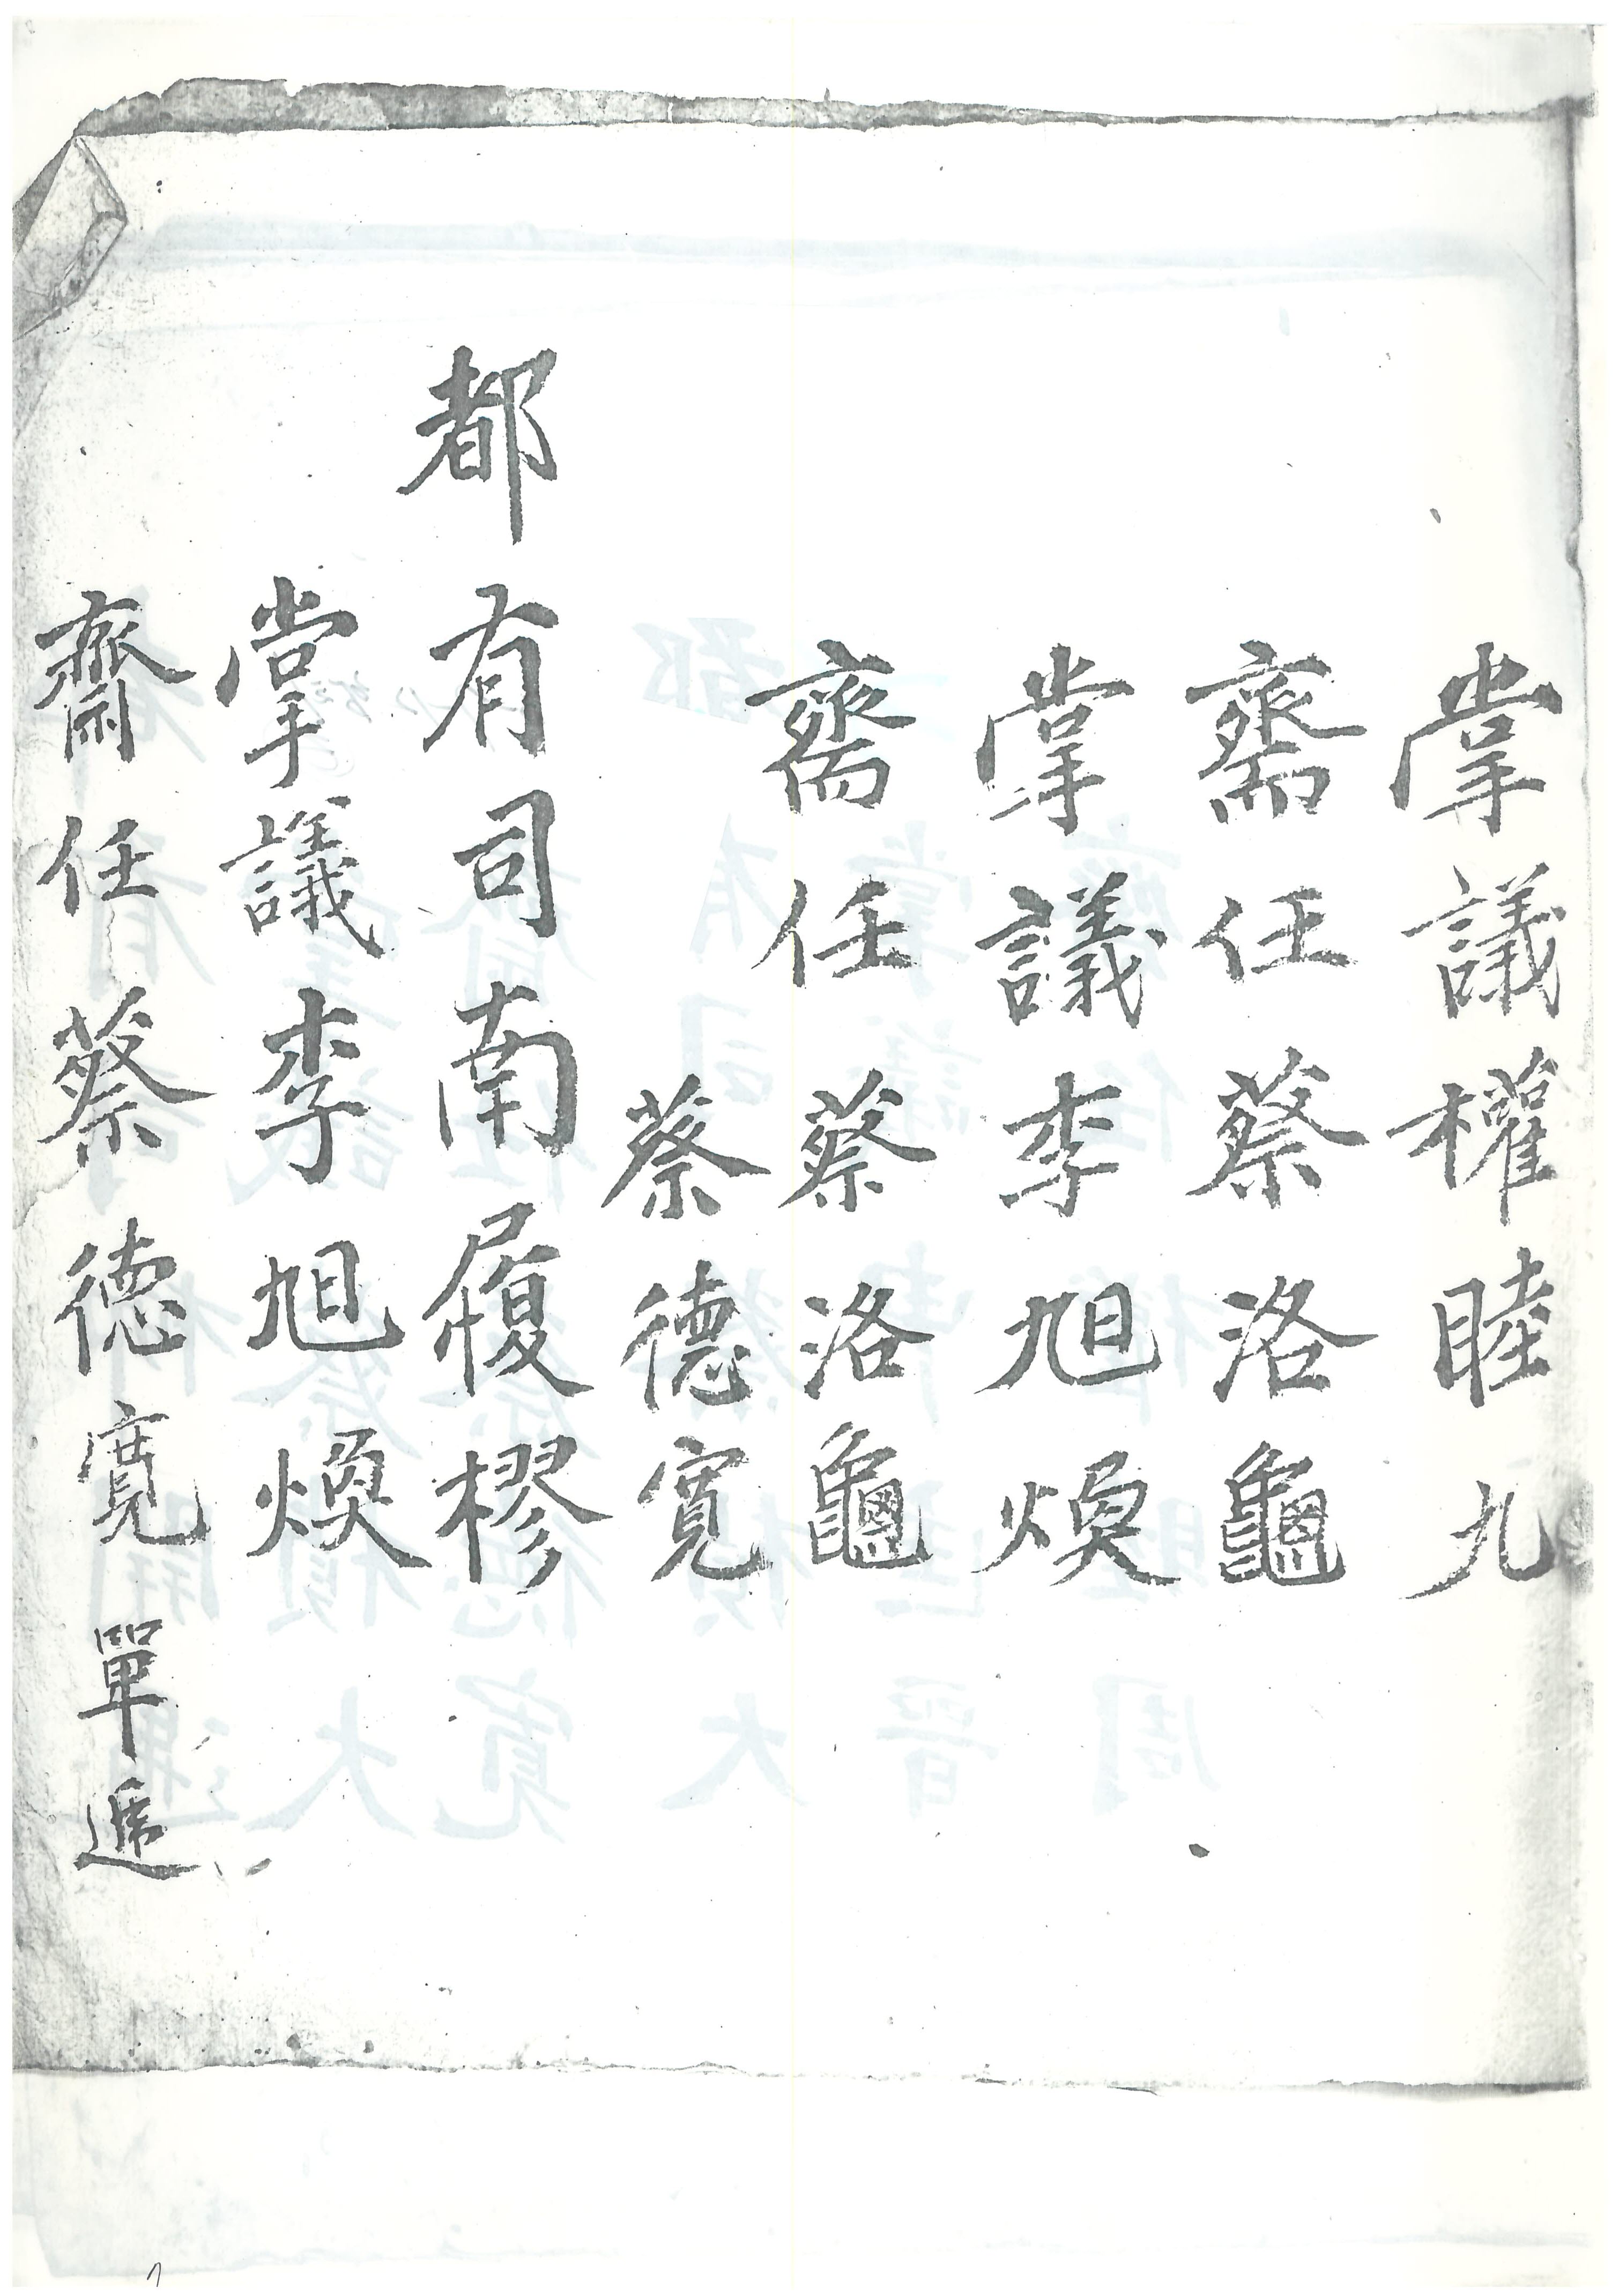 掌議權睦九
齋任蔡洛龜
掌議李旭煥
齋任蔡洛龜
蔡德寬
都有司南履樛
掌議李旭煥
齋任蔡德寬單遞